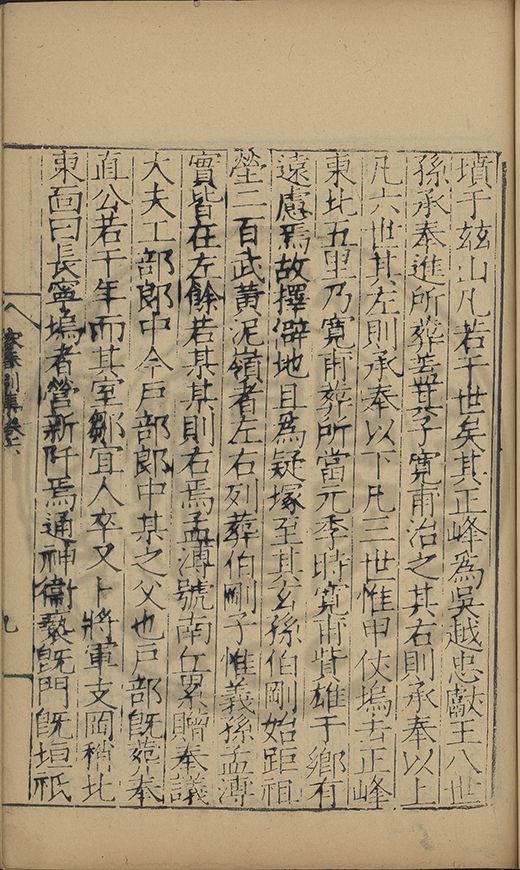 墳于玆山凡若干世矣其正峰為吳越忠獻王八世
孫承奉進所葬葢其子寛甫治之其右則承奉以上
凡六世其左則承奉以下凡三世惟甲仗塢去正峰
東北五里乃寛甫葬所當元季時寛甫貲雄于鄉有
遠慮焉故擇僻地且為疑塚至其玄孫伯剛始距祖
塋二百武黄泥嶺者左右列葬伯剛子惟義孫孟溥
實皆在左餘若某某則右焉孟溥號南仁累贈奉議
大夫工部郎中今戶部郎中某之父也戶部旣葬奉
直公若干年而其室鄒宜人卒又卜將軍支岡稍北
東面曰長寧塢者營新阡焉通神衞
旣門旣垣祇
家藏別集卷六
九